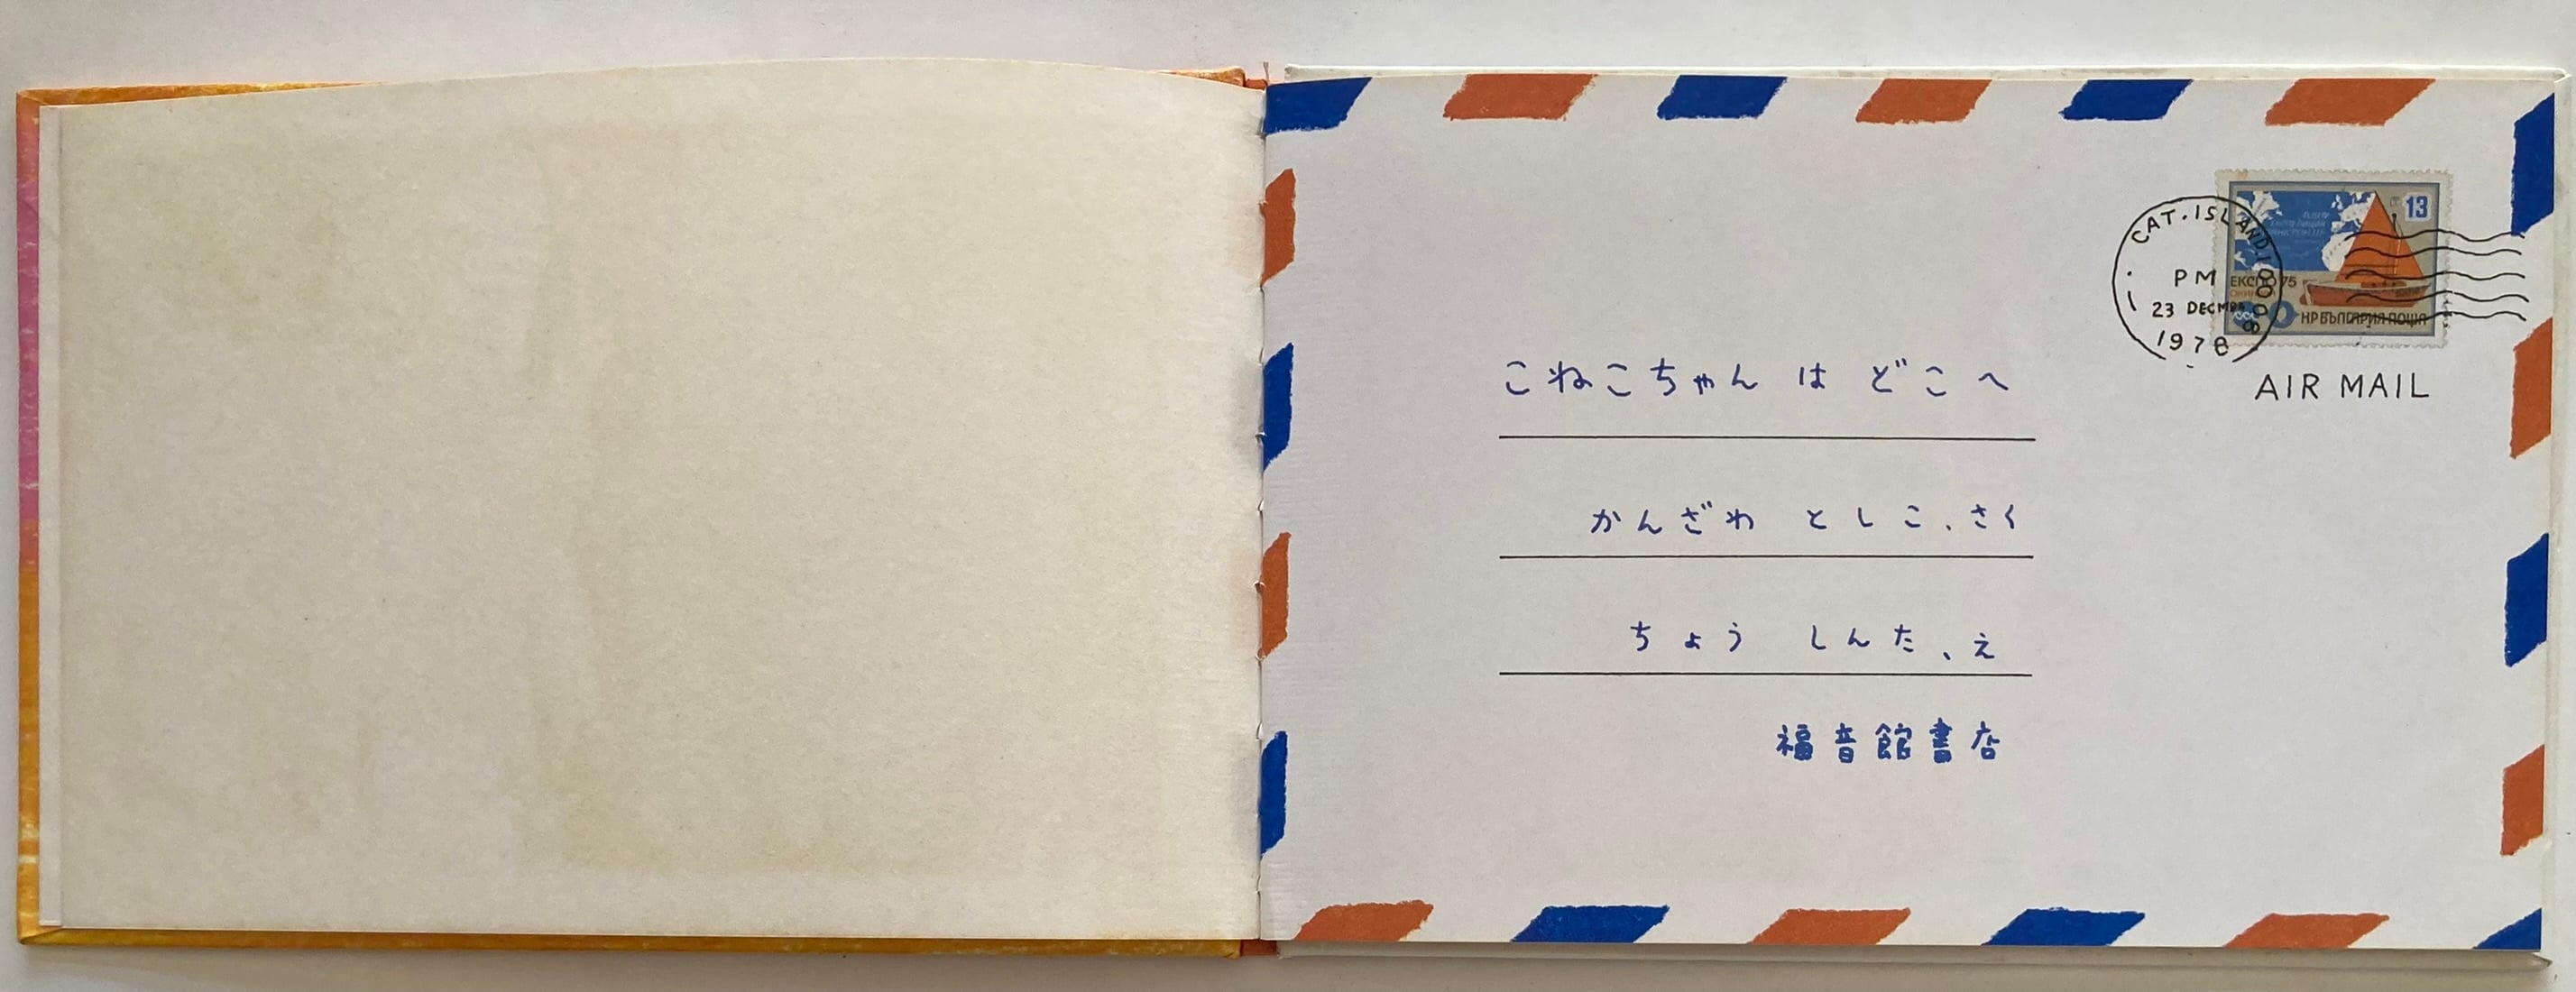 CAT. ISLAND. 10008
PM
23 DECMBR
1978
13
ЕКСПО 75
НР БЪЛГАРИЯ ПОЩА
AIR MAIL
こねこちゃん は どこへ
かんざわ としこ、さく
ちょう しんた、え
福音館書店